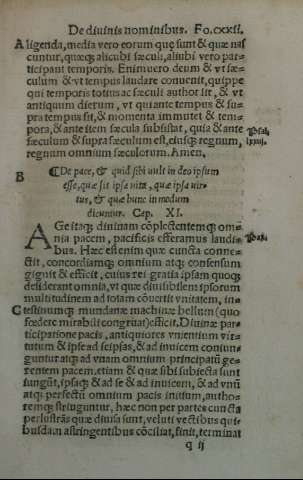 De diuinis nominibus. Fo.CXXII.
A ligenda, media vero eorum que sunt & quæ nas
cuntur, quæq; alicubi sæculi, aliubi vero par
ticipant temporis. Enimuero deum & vt sæ-
culum & vt tempus laudare conuenit, quippe
qui temporis totius ac sæculi author sit, & vt
antiquum dierum, vt qui ante tempus & su-
pra tempus sit, & momenta immutet & tem-
pora, & ante item sæcula subsistat, quia & ante
sæculum & supra sæculum est, eiusq; regnum,
regnum omnium sæculorum. Amen.
Psal.
B
¶De pace, & quid sibi uult in deo ipsum
esse, quæ sit ipsa uita, quæ ipsa uir-
tus, & quæ hunc in modum
dicuntur. Cap. XI.
AGe itaq; diuinam cõplectentẽq; om-
nia pacem, pacificis efferamus laudi-
bus. Hæc est enim quæ cuncta conne-
ctit, concordiamq; omnium atq; consensum
gignit & efficit, cuius rei gratia ipsam quoq;
desiderant omnia, vt quæ diuisibilem ipsorum
multitudinem ad totam cõuertit vnitatem, in-
C testinumq; mundanæ machinæ bellum (quo
fœdere mirabili congruat) efficit. Diuinæ par-
ticipatione pacis, antiquiores vnientium vir-
tutum & ipse ad seipsas, & ad inuicem coniun-
guntur atq; ad vnam omnium principatũ ge-
rentem pacem, etiam & quæ sibi subiecta sunt
iungũt, ipsaq; & ad se & ad inuicem, & ad vnũ
atq; perfectũ omnium pacis initium, autho-
remq; stringuntur, hæc non per partes cuncta
perlustrãs quæ diuisa sunt, veluti vectibus qui-
busdam astringentibus cõciliat, finit, terminat
q ij